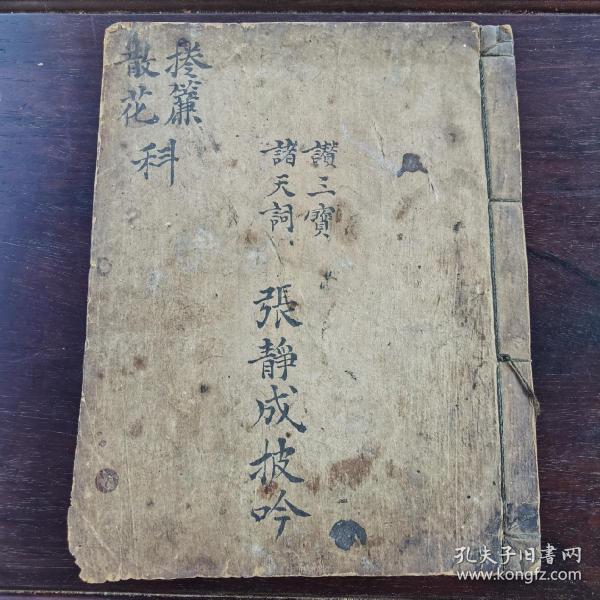 捲簾
散花
科
讚三寶
諸天詞
張靜成披吟
孔夫子旧書网
www.kongfz.com